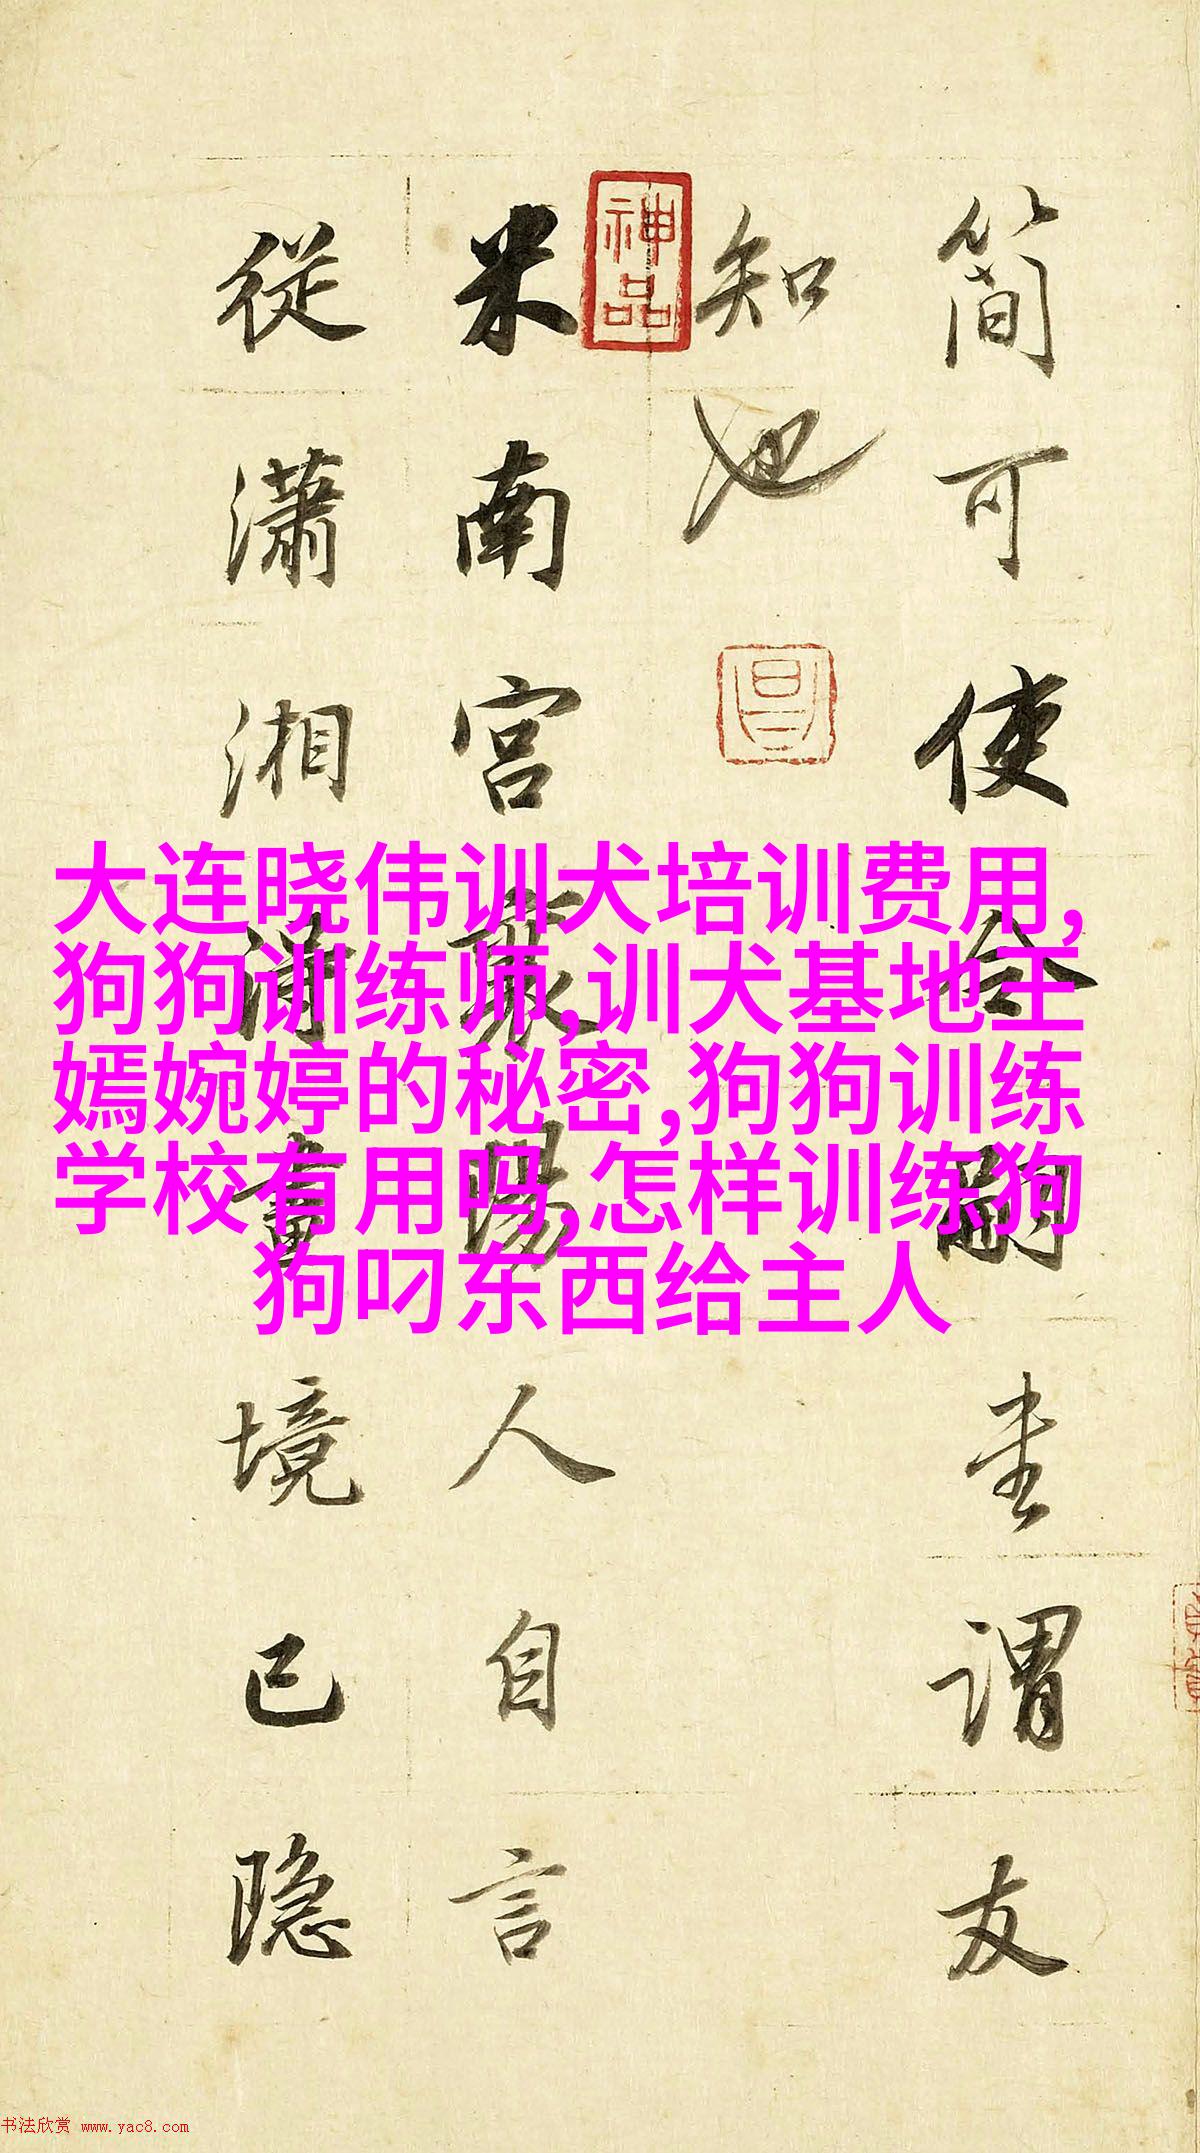 简可使令嗣圭谓友
知也
米南宫襄阳人自言
從瀟湘得畫境已隐
神品
大连晓伟训犬培训费用,
狗狗训练师,训犬基地王
嫣婉婷的秘密,狗狗训练
学校有用吗,怎样训练狗
狗叼东西给主人
书法欣赏 www.yac8.com